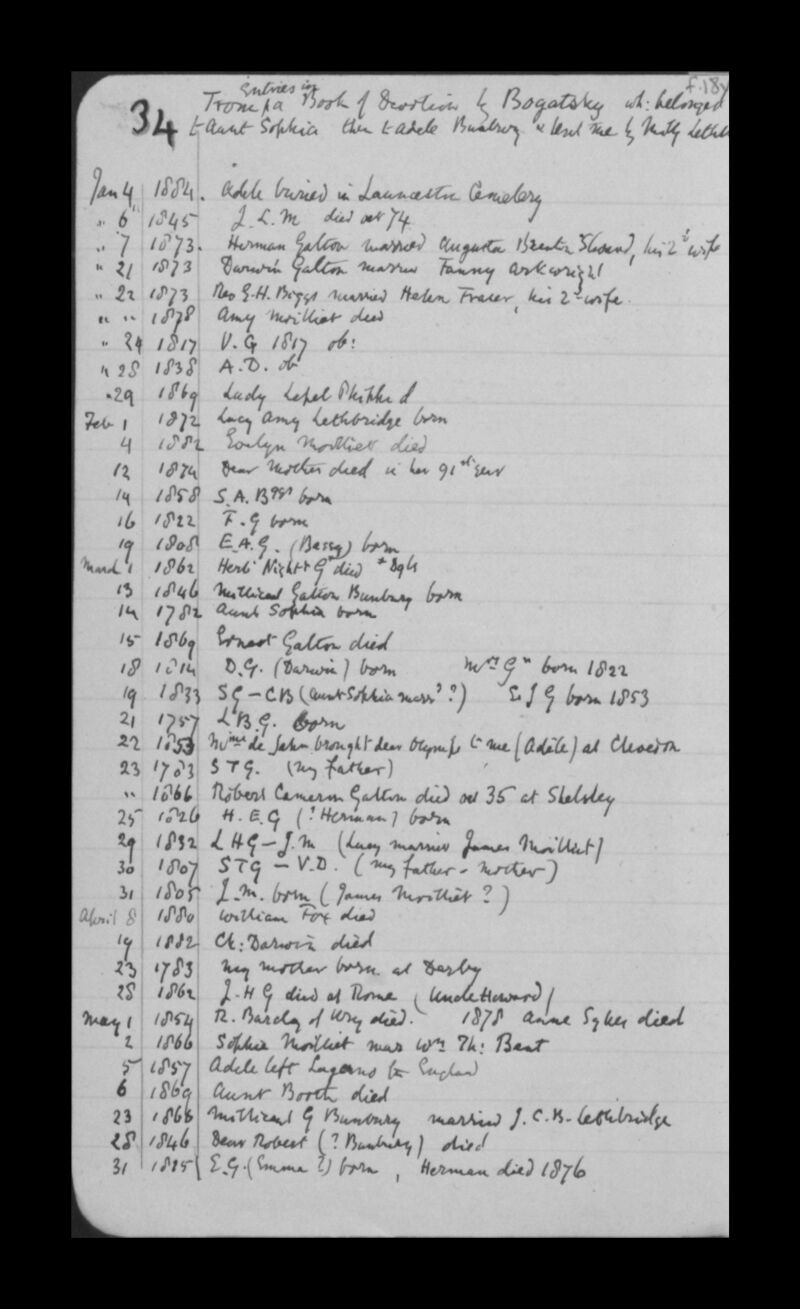 f.18v
34
entries in
From a Book of Devotion by Bogatsky wh: belonged
to Aunt Sophia then to Adele Bunbury & lent me by Milly Lethb
Jan 4 1884. Adele buried in Launceston Cemetery
" 6 1845 J. L. M died aet 74
" 7 1873. Herman Galton married Augusta, his 2d wife
" 21 1873 Darwin Galton married Fanny Arkwright
" 22 1873 Rev G. H. Biggs married Helen Fraser, his 2d wife.
" " 1878 Amy Moilliet died
" 24 1817 V. G 1817 ob:
" 28 1838 A. D. ob
" 29 1869 Lady Lepel
Feb 1 1872 Lucy Amy Lethbridge born
4 1882 Evelyn Moilliet died
12 1874 Dear Mother died in her 91st year
14 1858 S. A. Bggs born
16 1822 F. G born
19 1808 E. A. G. (Bessy) born
March 1 1862 died
13 1846 Millicent Galton Bunbury born
14 1782 Aunt Sophia born
15 1869 Ernest Galton died
18 1814 D. G. (Darwin) born Mrs Gn born 1822
19 1833 SG - CB (Aunt Sophia marrd ?) E J G born 1853
21 1757 L B. G. born
22 1853 Mme de brought dear Olympe to me (Adèle) at Clevedon
23 1783 S T G. (my father)
" 1866 Robert Cameron Galton died aet 35 at Shelsley
25 1826 H. E. G (? Herman) born
29 1832 L H G - J. M (Lucy married James Moilliet)
30 1807 S T G - V. D. (my father - mother)
31 1805 J. M. born (James Moilliet ?)
April 8 1880 William Fox died
19 1882 Ch: Darwin died
23 1783 my mother born at Derby
28 1862 J. H G died at Rome (Uncle Howard)
May 1 1854 R. Barclay of Ury died. 1878 Anne Sykes died
2 1866 Sophia Moilliet mar Wm Th: Bent
5 1857 Adele left Lugano for England
6 1869 Aunt Booth died
23 1866 Millicent G Bunbury married J. C. B. Lethbridge
28 1846 Dear Robert (? Bunbury) died
31 E. G. (Emma ?) born, Herman died 1876